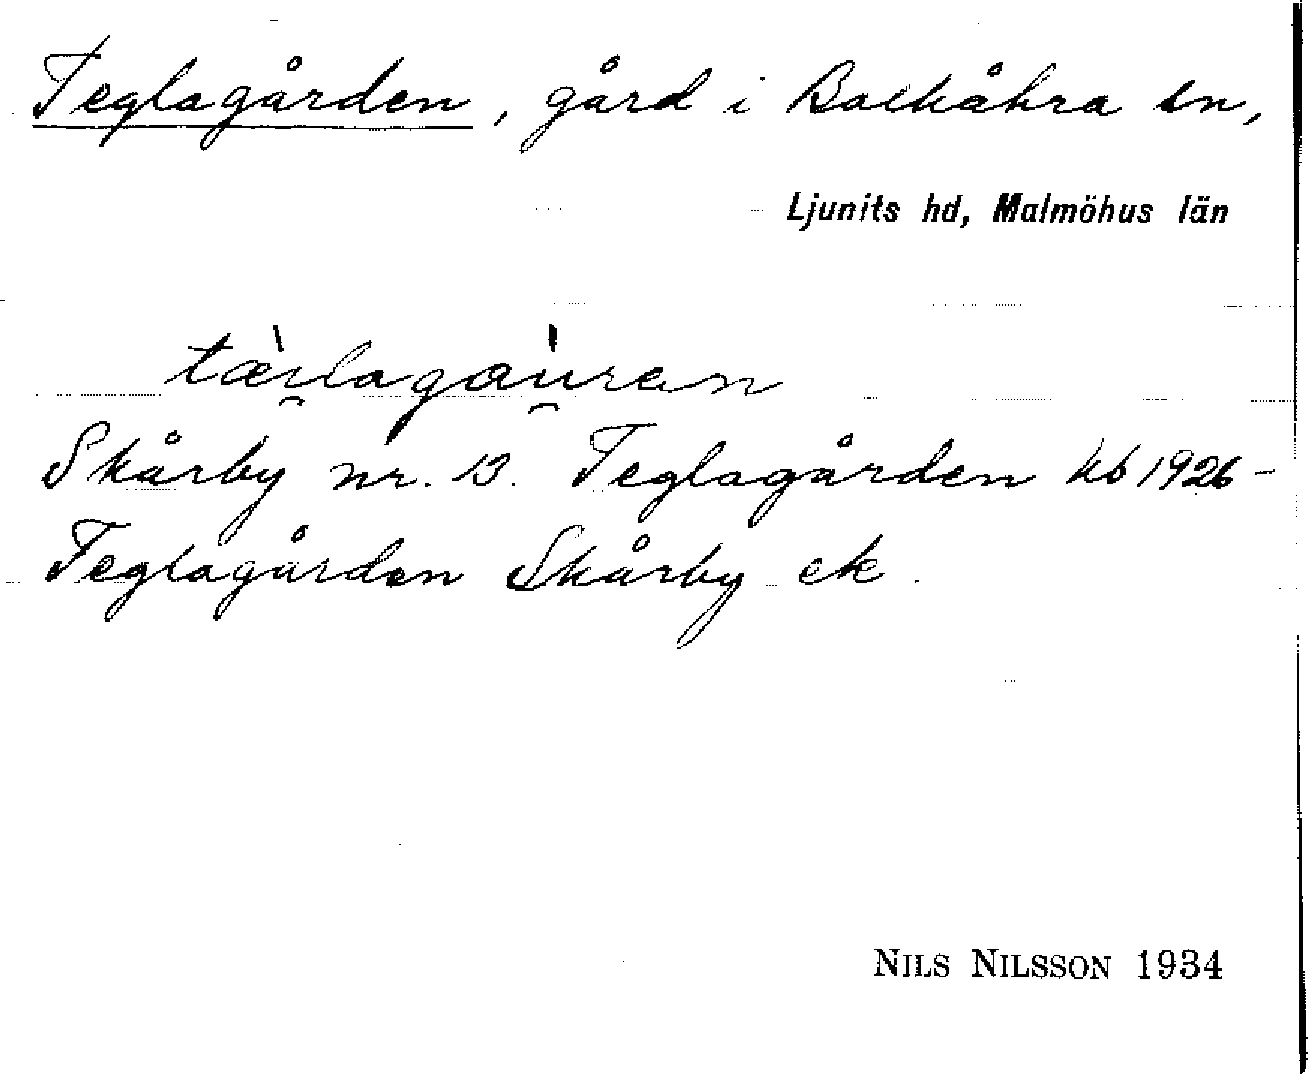 Teglagården, gård i Balkåkra sn,
Ljunits hd, Malmöhus län
tæ̀i̯lagáu̯ran
Skårby nr. 13. Teglagården kb 1926-
Teglagården Skårby ek.
NILS NILSSON 1934